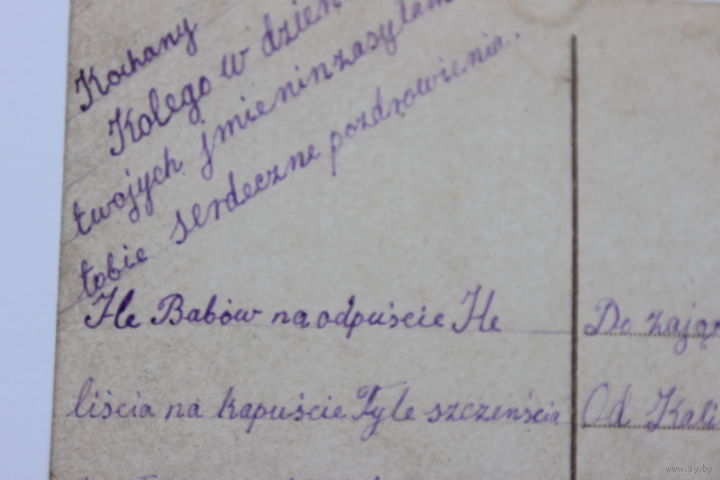 Kochany
Kolego w dzień
twojych jmienin zasyłam
tobie serdeczne pozdrowienia.
Ile Babów na odpuście Ile
liścia na kapuście Tyle szczenścia
Do zając
Od Kali
www.ay.by